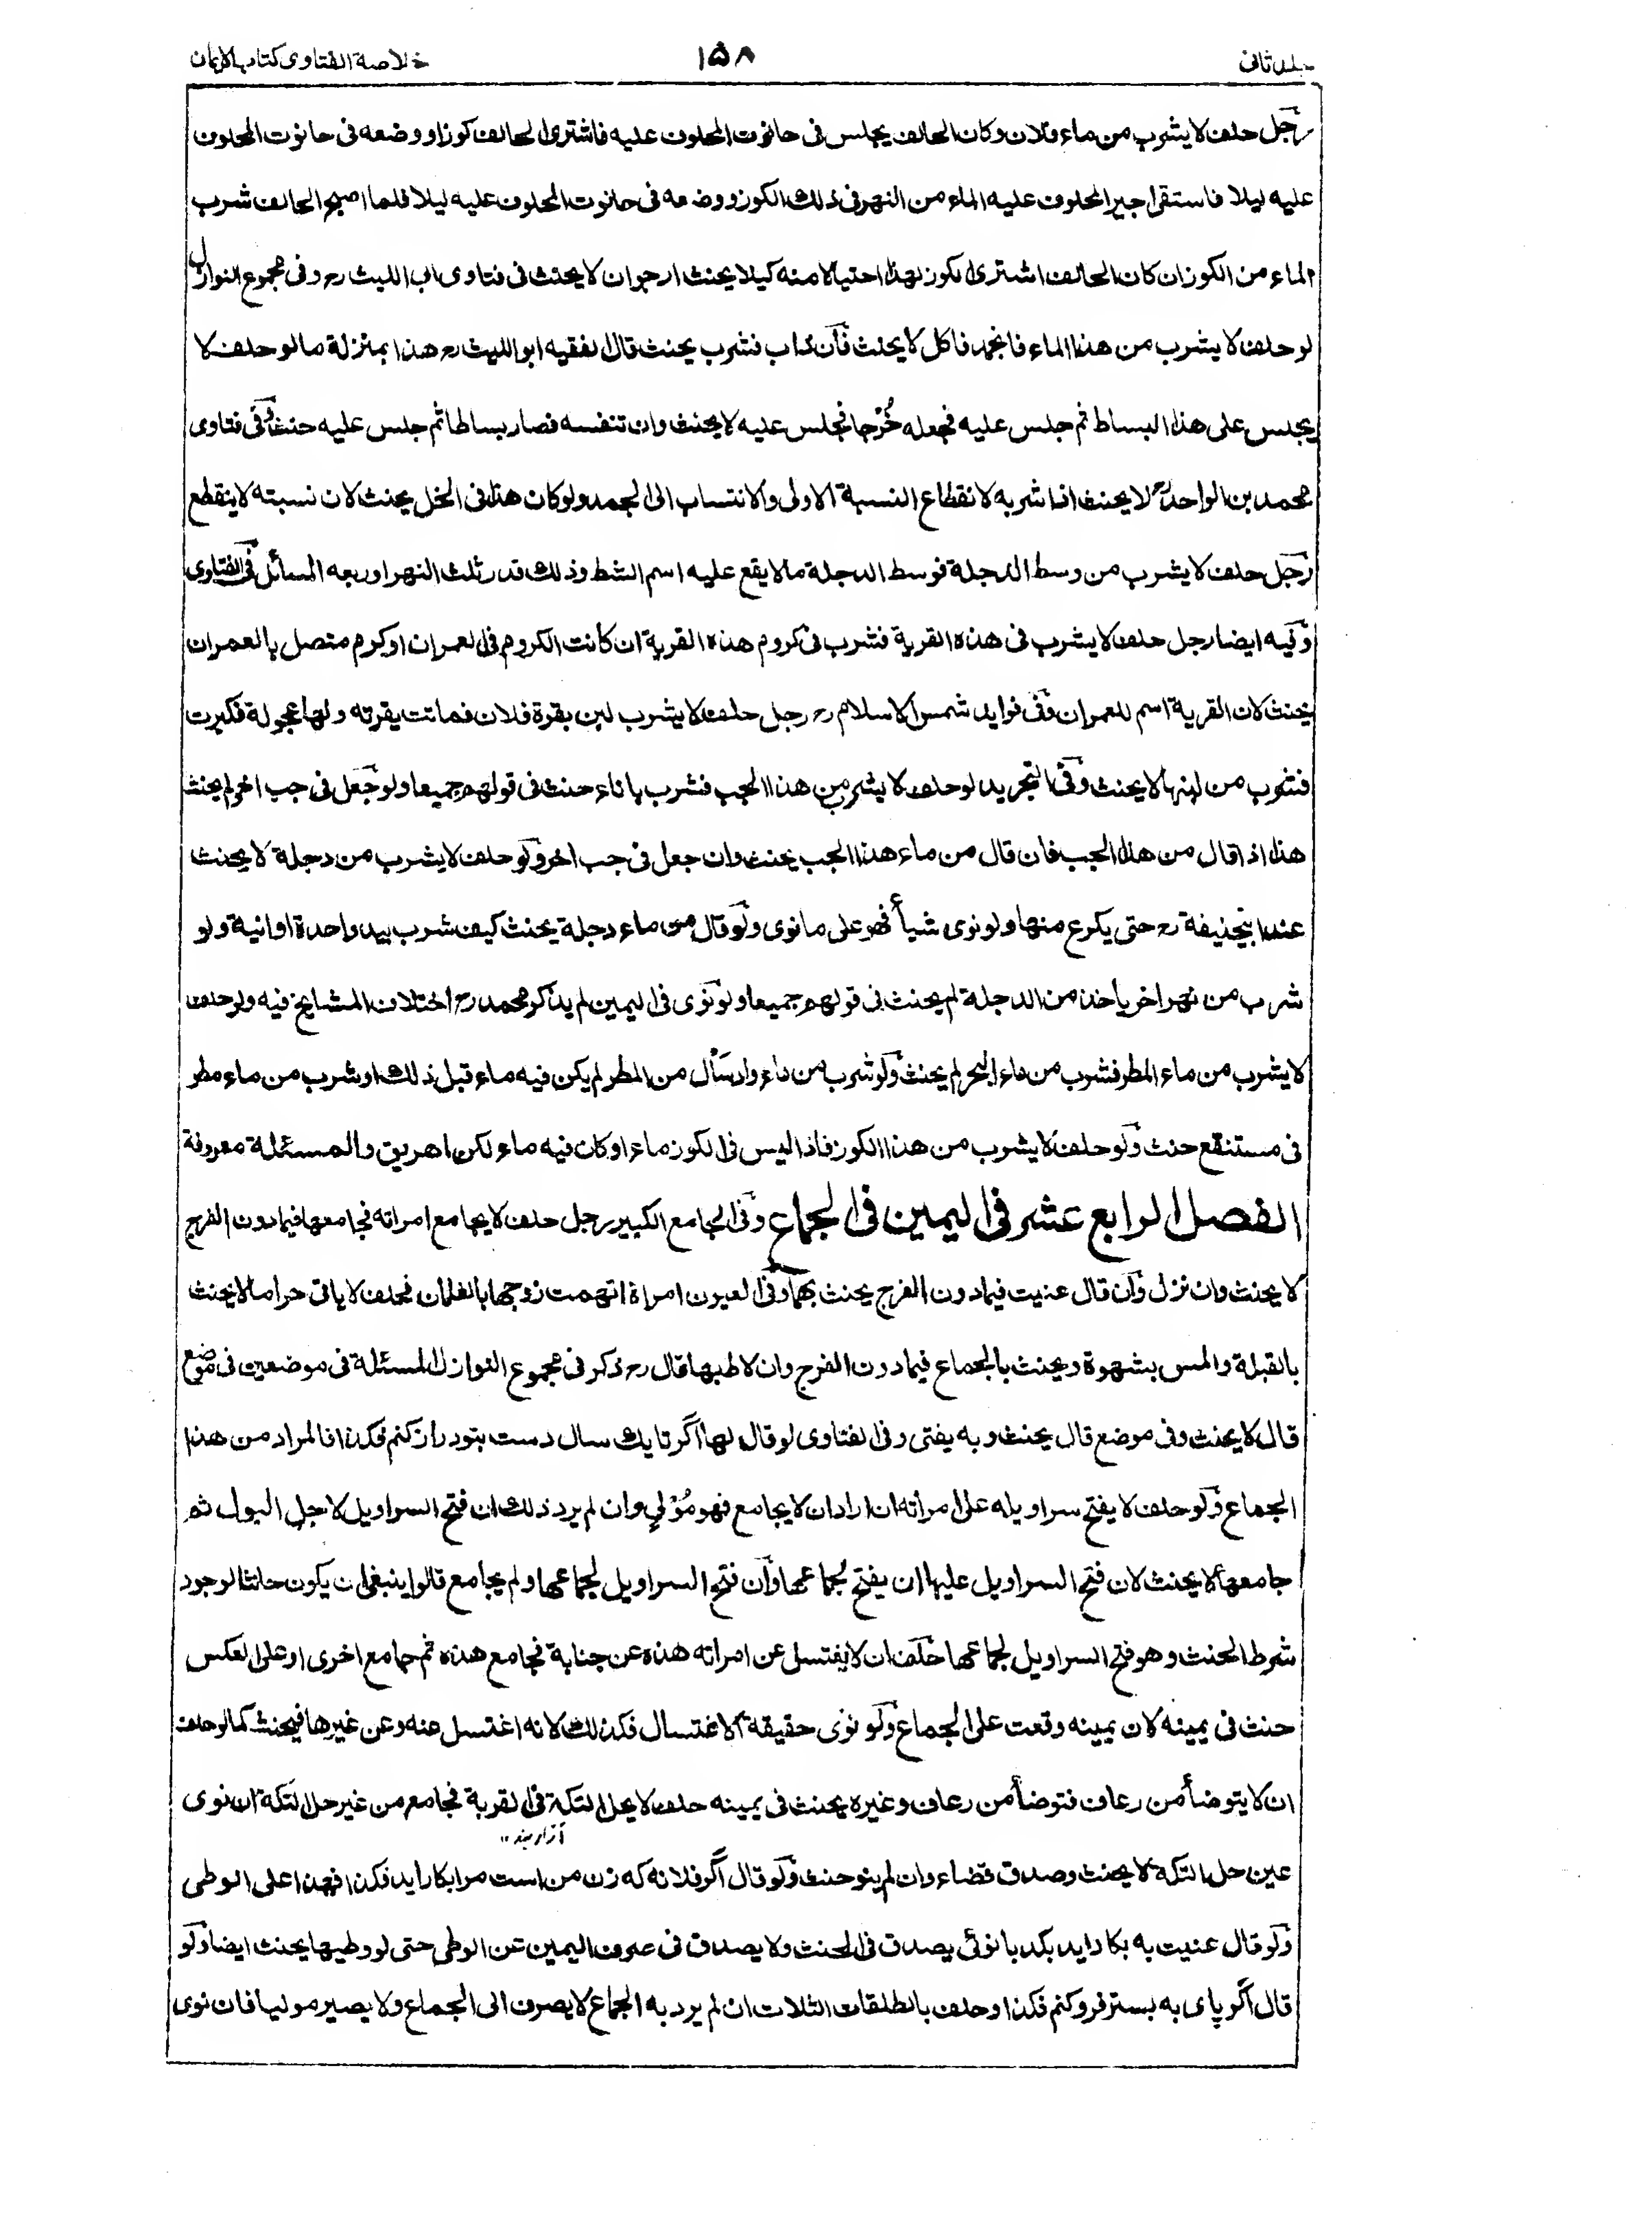 جلد ثانی ۱۵۸ خلاصة الفتاوی کتاب الایمان
رجل حلف لا یشرب من ماء فلان وکان الحالف یجلس فی حانوت المحلوف علیه فاشتری الحالف کوزا ووضعه فی حانوت المحلوف
علیه لیلا فاستقی اجیر المحلوف علیه الماء من النهر فی ذلك الکوز ووضعه فی حانوت المحلوف علیه لیلا فلما اصبح الحالف شرب
الماء من الکوز ان کان الحالف اشتری الکوز لهذا احتیالا منه کیلا یحنث ارجو ان لا یحنث فی فتاوی ابی اللیث رح وفی مجموع النوازل
لو حلف لا یشرب من هذا الماء فانجمد فاکل لا یحنث فان ذاب فشرب یحنث قال الفقیه ابو اللیث رح هذا بمنزلة ما لو حلف لا
یجلس علی هذا البساط ثم جلس علیه فجعله خُرْجا فجلس علیه لا یحنث وان تنفسه فصار بساطا ثم جلس علیه حنث وفی فتاوی
محمد بن الواحد رح لا یحنث اذا شربه لانقطاع النسبة الاولی والانتساب الی الجمد ولو کان هذا فی الخل یحنث لان نسبته لا ینقطع
رجل حلف لا یشرب من وسط الدجلة فوسط الدجلة مالا یقع علیه اسم الشط وذلك قدر ثلث النهر اوربعه المسائل فی الفتاوی
وفیه ایضا رجل حلف لا یشرب فی هذه القریة فشرب فی کروم هذه القریة ان کانت الکروم فی العمران او کرم متصل بالعمران
یحنث لان القریة اسم للعمران وفی فواید شمس الاسلام رح رجل حلف لا یشرب لبن بقرة فلان فماتت بقرته ولها عجولة فکبرت
فشرب من لبنها لا یحنث وفی التجرید لو حلف لا یشرب من هذا الجب فشرب باناء حنث فی قولهم جمیعا ولو جعل فی جب اخر لم یحنث
هذا اذا قال من هذا الجب فان قال من ماء هذا الجب یحنث وان جعل فی جب اخر ولو حلف لا یشرب من دجلة لا یحنث
عند ابیحنیفة رح حتی یکرع منها ولو نوی شیأ فهو علی ما نوی ولو قال من ماء دجلة یحنث کیف شرب بید واحدة او انیة ولو
شرب من نهر اخر یأخذ من الدجلة لم یحنث فی قولهم جمیعا ولو نوی فی الیمین لم یذکر محمد رح اختلاف المشایخ فیه ولو حلف
لا یشرب من ماء المطر فشرب من ماء البحر لم یحنث ولو شرب من ماء واد سال من المطر لم یکن فیه ماء قبل ذلك او شرب من ماء مطر
فی مستنقع حنث ولو حلف لا یشرب من هذا الکوز فاذا لیس فی الکوز ماء او کان فیه ماء لکن اهریق والمسئلة معروفة
الفصل الرابع عشر فی الیمین فی الجماع وفی الجامع الکبیر رجل حلف لا یجامع امراته فجامعها فیما دون الفرج
لا یحنث وان نزل وان قال عنیت فیما دون الفرج یحنث بهما وفی العیون امراة اتهمت زوجها بالغلمان فحلف لا یاتی حراما لا یحنث
بالقبلة والمس بشهوة ویحنث بالجماع فیما دون الفرج وان لاطبها قال رح ذکر فی مجموع النوازل المسئلة فی موضعین فی موضع
قال لا یحنث وفی موضع قال یحنث وبه یفتی وفی الفتاوی لو قال لها اگر تا یك سال دست بتو دراز کنم فکذا فالمراد من هذا
الجماع ولو حلف لا یفتح سراویله علی امراته ان اراد ان لا یجامع فهو مُوْلیٍ وان لم یرد ذلك ان فتح السراویل لاجل البول ثم
جامعها لا یحنث لان فتح السراویل علیها ان یفتح لجماعها وان فتح السراویل لجماعها ولم یجامع قالوا ینبغی ان یکون حانثا لوجود
شرط الحنث وهو فتح السراویل لجماعها حلف ان لا یغتسل عن امراته هذه عن جنابة فجامع هذه ثم جامع اخری او علی العکس
حنث فی یمینه لان یمینه وقعت علی الجماع ولو نوی حقیقة الاغتسال فکذلك لانه اغتسل عنه وعن غیرها فیحنث کما لو حلف
ان لا یتوضأ من رعاف فتوضأ من رعاف وغیره یحنث فی یمینه حلف لا یحل التکة فی القربة فجامع من غیر حل التکة ان نوی
آزاربند ۱۱
عین حل التکة لا یحنث وصدق قضاء وان لم ینو حنث ولو قال اگر فلانه که زن من است مرا بکار آید فکذا فهذا علی الوطی
ولو قال عنیت به بکار آید بکدبانوئی یصدق فی الحنث ولا یصدق فی صرف الیمین عن الوطی حتی لو وطیها یحنث ایضا ولو
قال اگر پای به بستر فرو کنم فکذا وحلف بالطلقات الثلاث ان لم یرد به الجماع لا یصرف الی الجماع ولا یصیر مولیا فان نوی